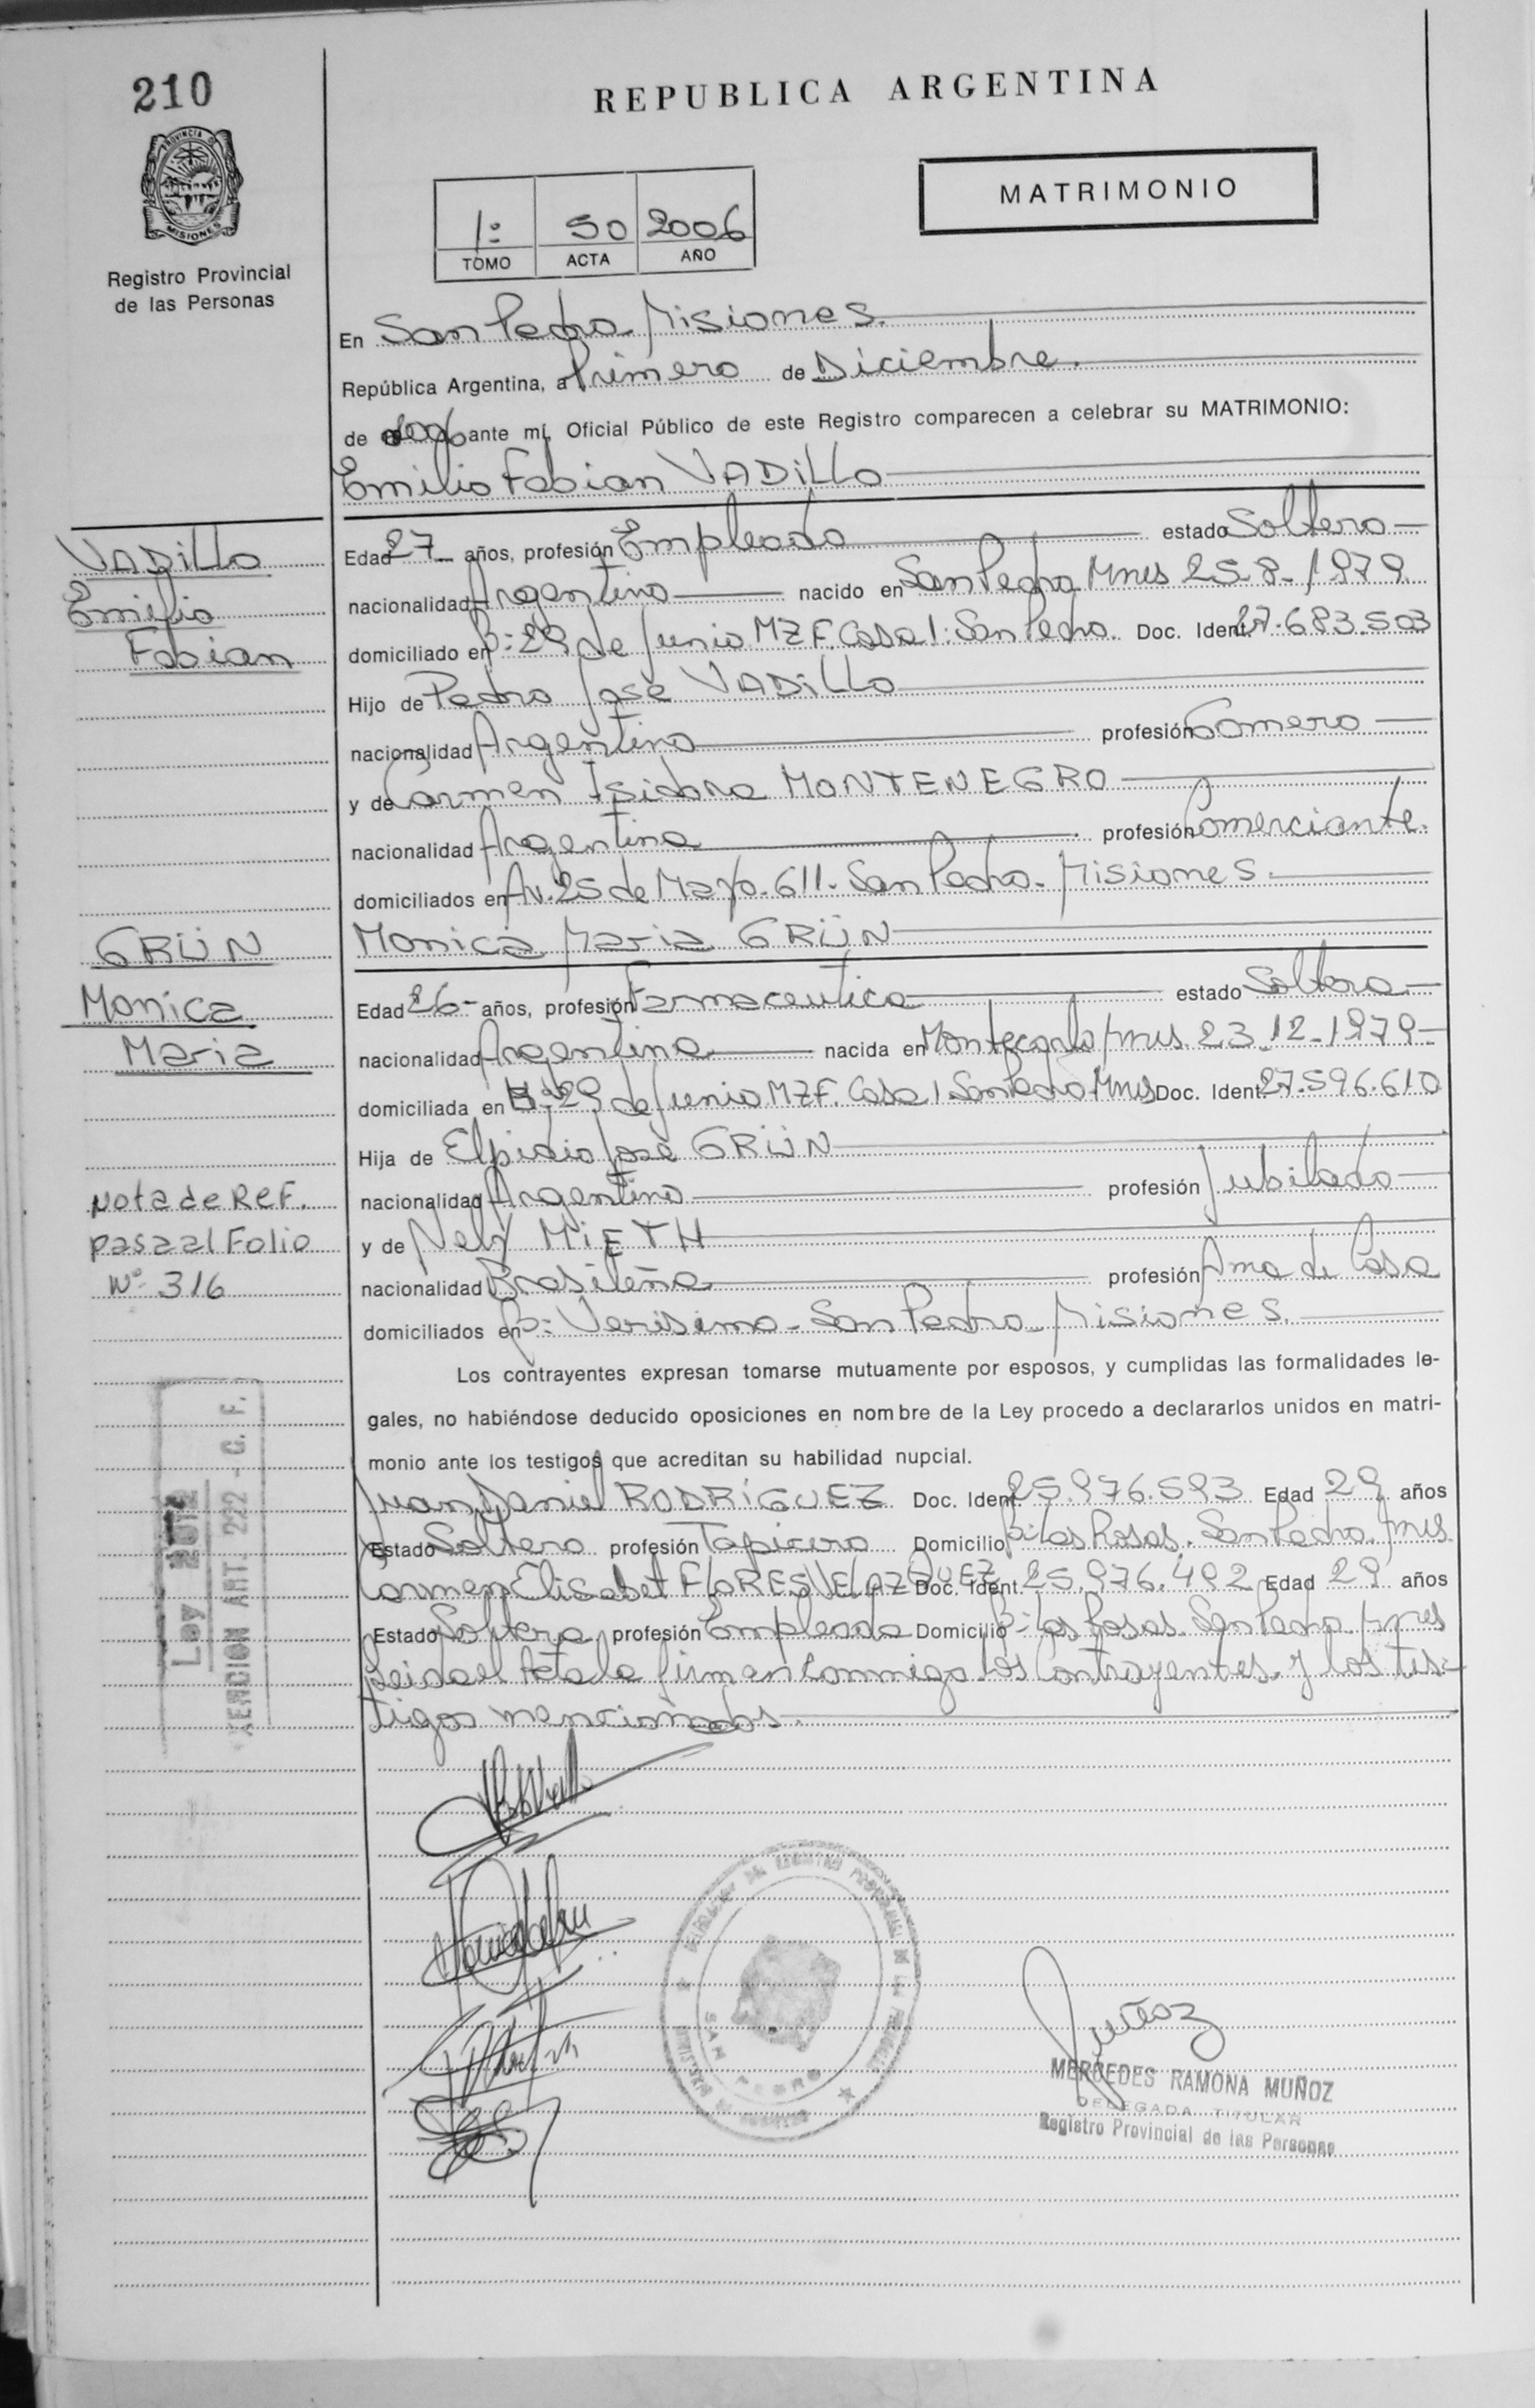 210
REPUBLICA ARGENTINA
PROVINCIA D
MISIONES
Registro Provincial
de las Personas
MATRIMONIO
1º 50 2006
TOMO ACTA AÑO
En San Pedro Misiones.
República Argentina, a Primero de Diciembre.
de 2006 ante mí, Oficial Público de este Registro comparecen a celebrar su MATRIMONIO:
Emilio Fabian VADILLO
VADILLO
Emilio
Fabian
Edad 27 años, profesión Empleado estado Soltero
nacionalidad Argentino nacido en San Pedro Mnes 25-8-1979
domiciliado en Bº 29 de Junio MZ F. Casa 1. San Pedro. Doc. Ident. 27.683.503
Hijo de Pedro José VADILLO
nacionalidad Argentino profesión Gomero
y de Carmen Isidora MONTENEGRO
nacionalidad Argentina profesión Comerciante.
domiciliados en Av. 25 de Mayo. 611. San Pedro. Misiones.
GRÜN
Monica
Maria
Monica Maria GRÜN
Edad 26 años, profesión Farmaceutica estado Soltera
nacionalidad Argentina nacida en Montecarlo Mnes. 23-12-1979
domiciliada en Bº 29 de Junio MZ F. Casa 1 San Pedro Mnes Doc. Ident. 27.596.610
Hija de Elpidio José GRÜN
nacionalidad Argentino profesión Jubilado
y de Nely MIETH
nacionalidad Brasileña profesión Ama de Casa
domiciliados en Bº Verisimo - San Pedro Misiones.
Nota de Ref.
pasa al Folio
Nº 316
Los contrayentes expresan tomarse mutuamente por esposos, y cumplidas las formalidades le-
gales, no habiéndose deducido oposiciones en nombre de la Ley procedo a declararlos unidos en matri-
monio ante los testigos que acreditan su habilidad nupcial.
Juan Daniel RODRÍGUEZ Doc. Ident. 25.976.593 Edad 29 años
Estado Soltero profesión Tapicero Domicilio Bº Las Rosas. San Pedro. Mnes
Carmen Elisabet FLORES VELAZQUEZ Doc. Ident. 25.976.492 Edad 29 años
Estado Soltera profesión Empleada Domicilio Bº Las Rosas. San Pedro. Mnes
Leida el Acta la firman conmigo los contrayentes y los tes-
tigos mencionados.
Ley
XENCION ART. 222 - C. F.
SAN PEDRO
Muñoz
MERCEDES RAMONA MUÑOZ
DELEGADA TITULAR
Registro Provincial de las Personas